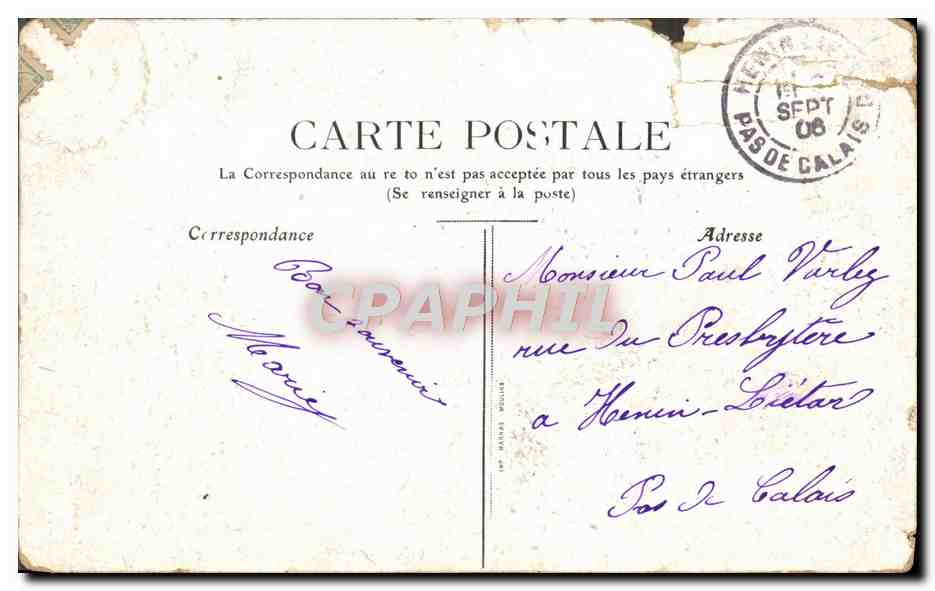 CARTE POSTALE
La Correspondance au re to n'est pas acceptée par tous les pays étrangers
(Se renseigner à la poste)
HENIN-LIE D
SEPT
06
PAS DE CALAIS
Correspondance
Bon souvenir
Marie
Adresse
Monsieur Paul Varlez
rue du Presbytère
a Henin-Liétar
Pas de Calais
IMP. MARNAS MOULINS
CPAPHIL